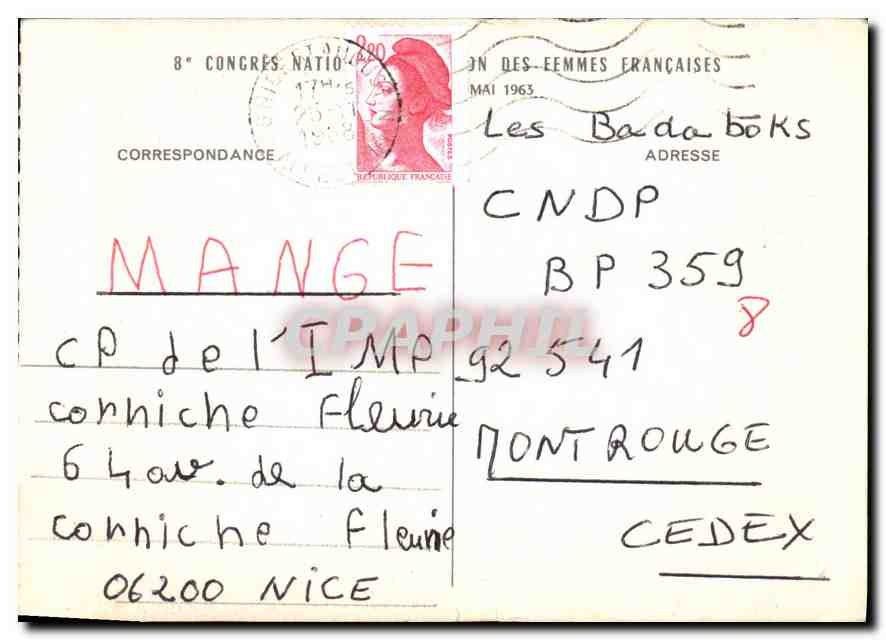 8e CONGRÈS NATIO
ON DES FEMMES FRANÇAISES
MAI 1963
2,20
POSTES
RÉPUBLIQUE FRANÇAISE
CORRESPONDANCE
ADRESSE
MANGE
CP de l'IMP
corniche Fleurie
64 av. de la
corniche Fleurie
06200 NICE
Les Badaboks
CNDP
BP 359
8
92 541
MONTROUGE
CEDEX
CPAPHIL